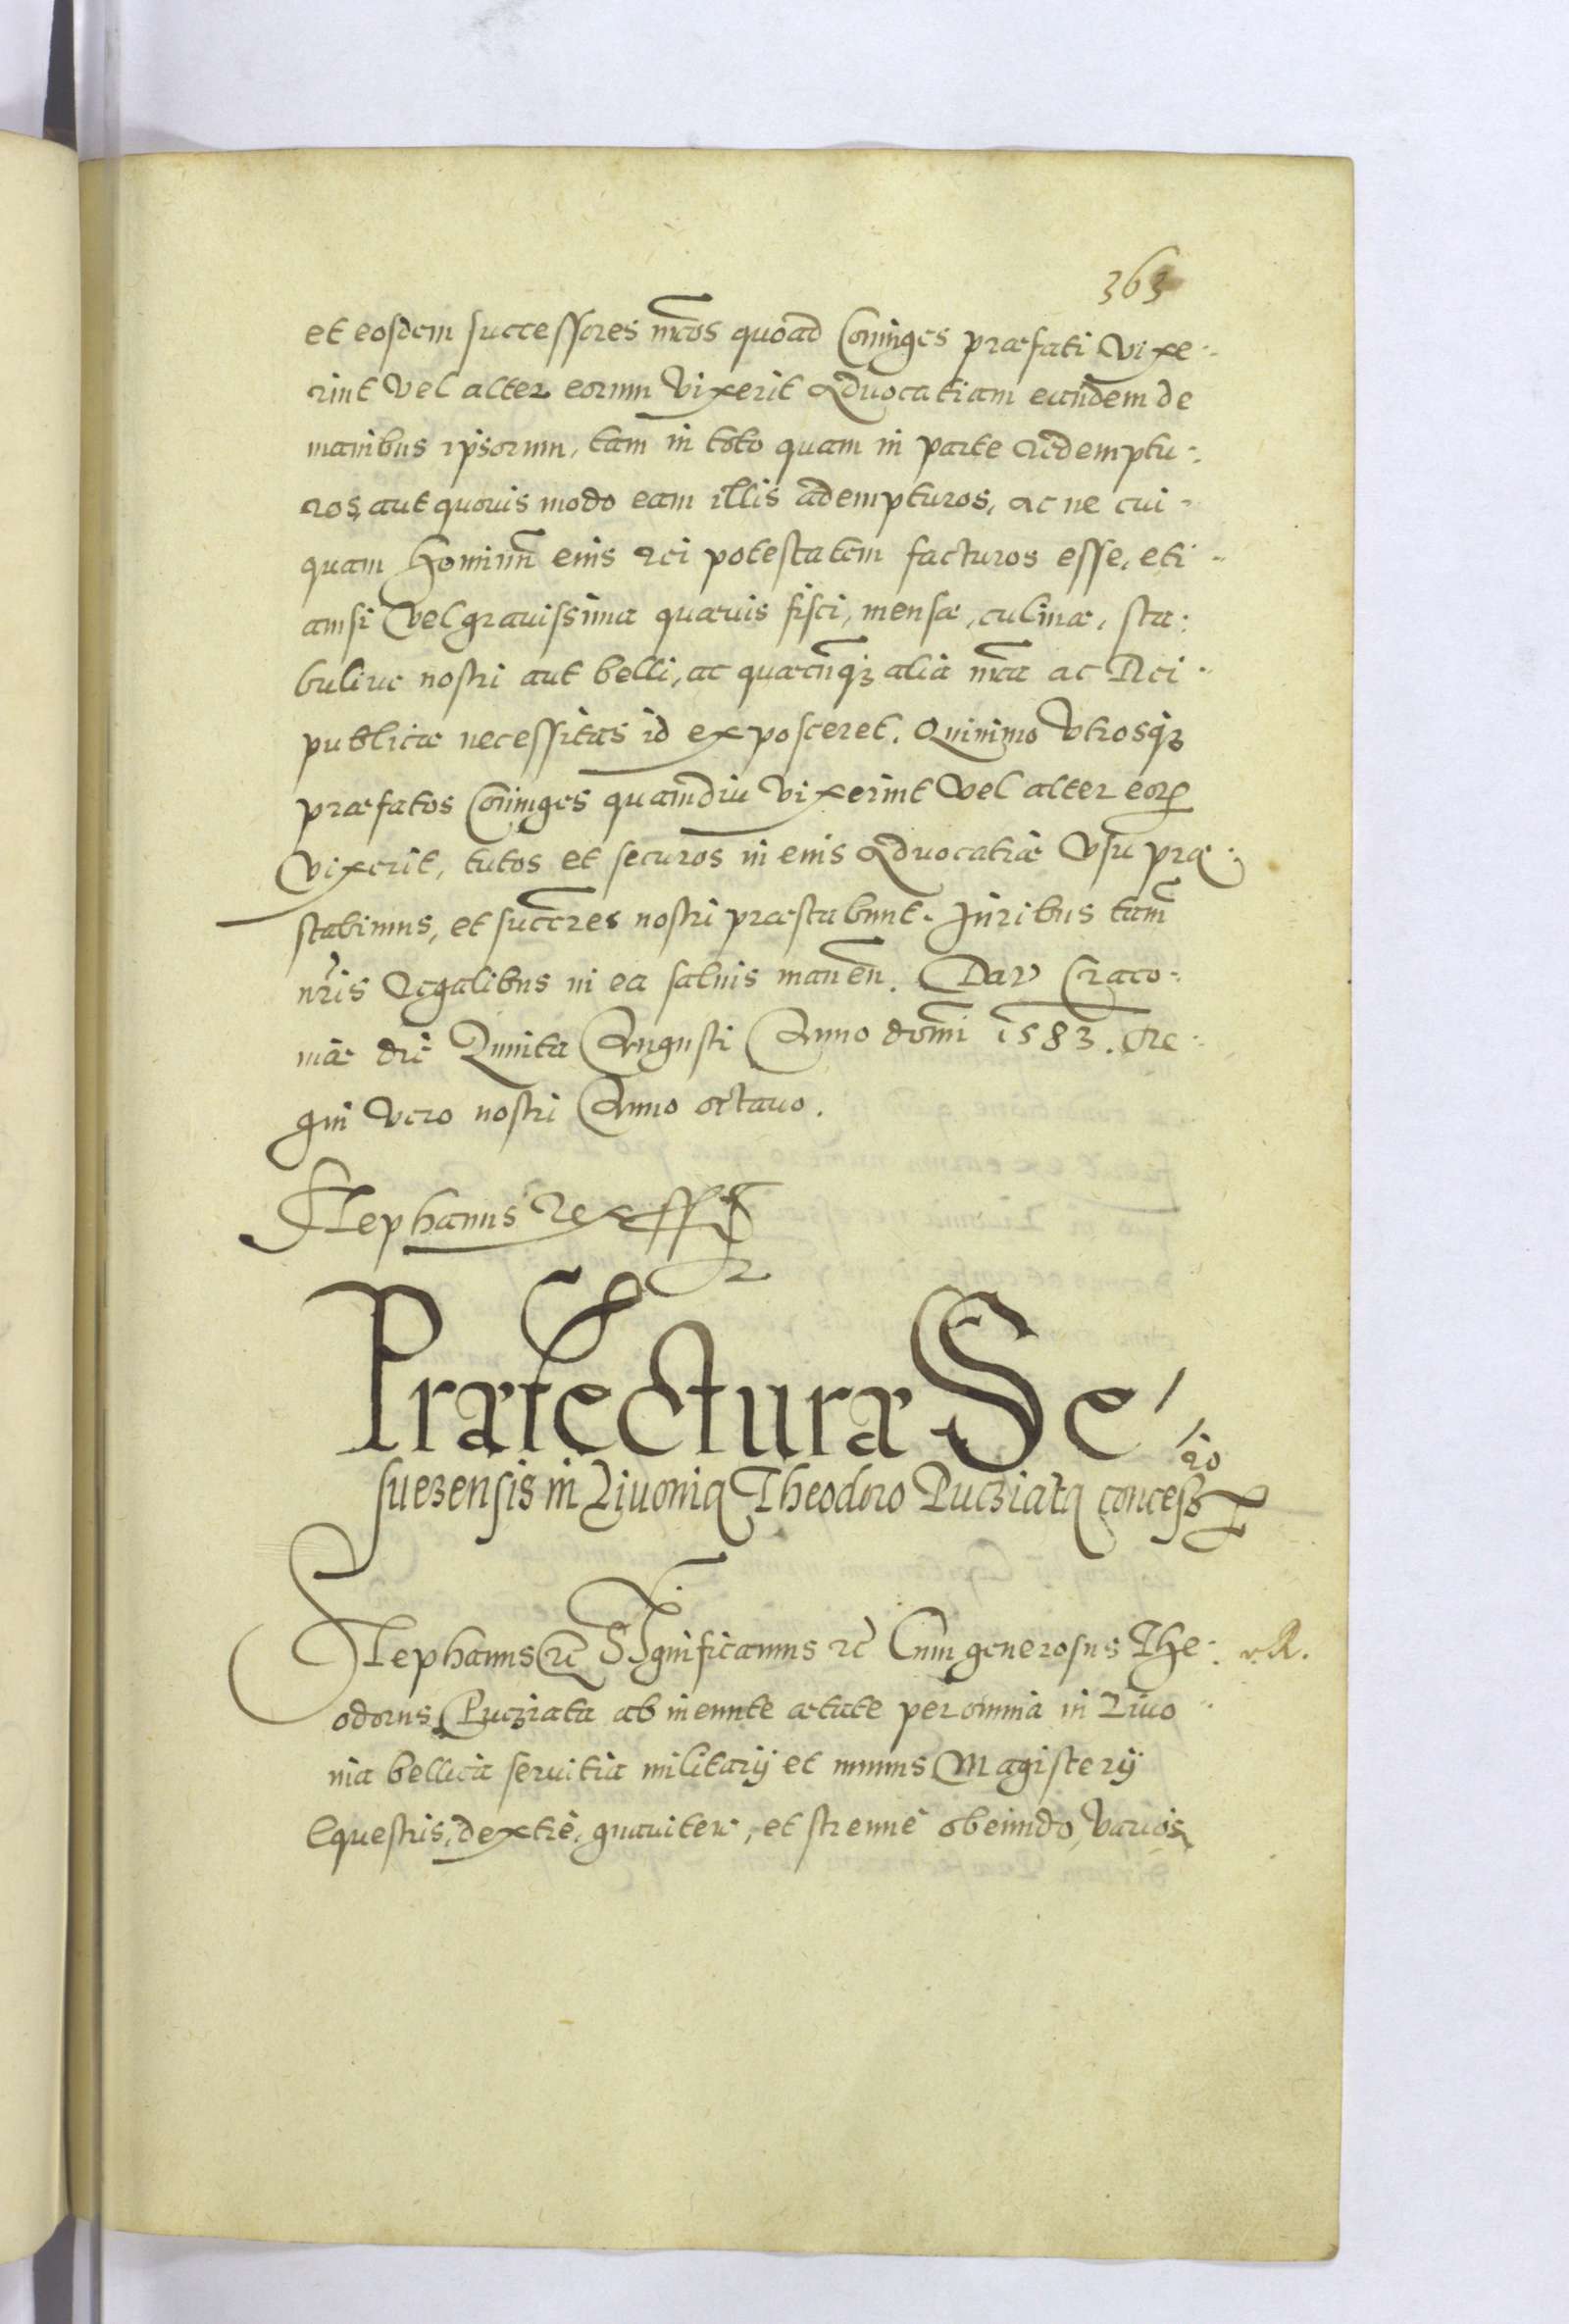 363
et eosdem successores nr̃os quoad Coniuges præfati vixe-
rint vel alter eorum vixerit Aduocatiam eandem de
manibus ipsorum, tam in toto quam in parte redemptu-
ros, aut quouis modo eam illis adempturos, ac ne cui-
quam hominũ eius rei potestatem facturos esse, eti-
amsi vel grauissima quæuis fisci, mensæ, culinæ, sta-
buliue nostri aut belli, ac quæcũq; alia nr̃a ac Rei-
publicæ necessitas id exposceret. Quinimo vtrosq;
præfatos Coniuges quamdiu vixerint vel alter eorꝝ
vixerit, tutos et securos in eius Aduocatiæ vsu præ-
stabimus, et succr̃es nostri præstabunt. Iuribus tam̃
nr̃is Regalibus in ea saluis maneñ. Dat Craco-
uiæ die Quinta Augusti Anno domĩ 1583. Re-
gni vero nostri Anno octauo.
Stephanus Rex ss
Præfectura Se-
suezensis in Liuonia Theodoro Pucziata concess
io
Stephanus ꝛc̃ Significamus ꝛc̃ Cum generosus The- R.
odorus Pucziata ab ineunte ætate per omnia in Liuo-
nia bellica seruitia militarij et munus Magisterij
Equestris, dextrè, gnauiter, et strenuè obeundo, varios